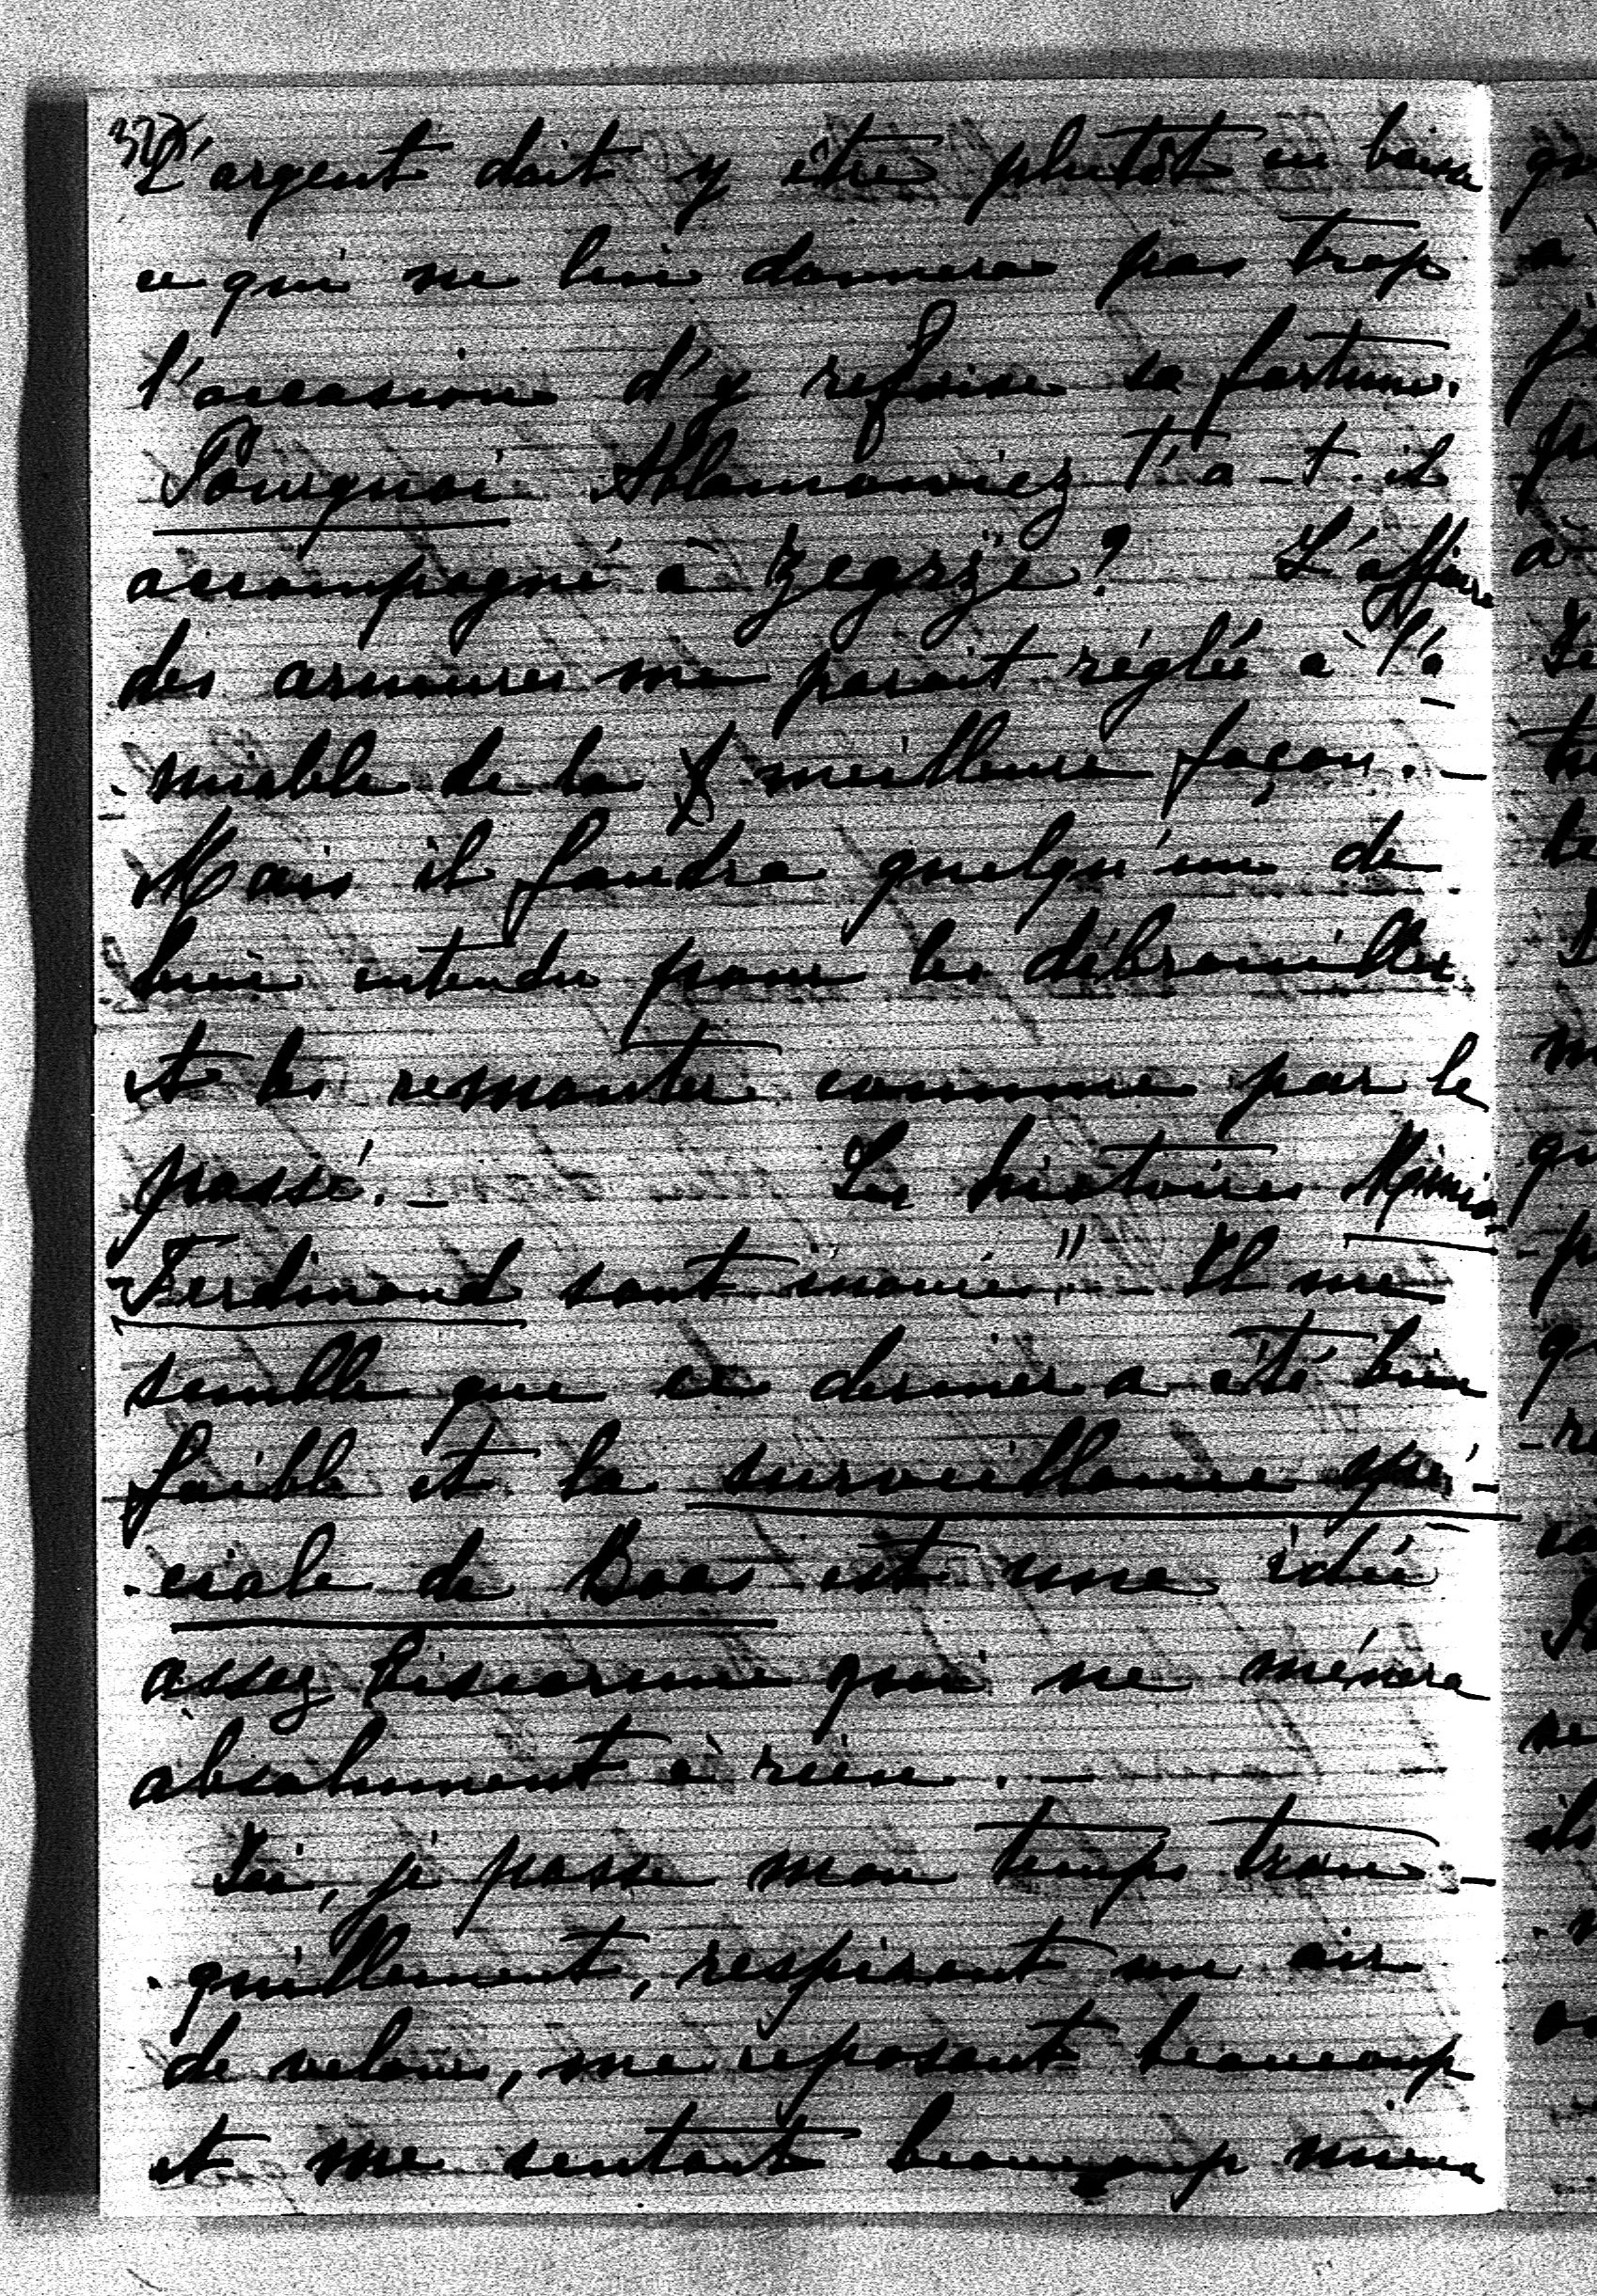 L'argent doit y être plutôt en baisse
ce qui ne lui donnera pas trop
l'occasion d'y refaire sa fortune.
Pourquoi Ablamowicz t'a-t-il
accompagné à Zegrze? L'affaire
des armures me parait réglée à l'a-
-miable de la meilleure façon. -
Mais il faudra quelqu'un de
bien entendu pour les débrouiller
et les remonter comme par le
passé. - Les histoires Mimia-
-Ferdinand sont inouïes" - Il me
semble que ce dernier a été bien
faible et la surveillance spé-
-ciale de Boas est une idée
assez biscornue qui ne mènera
absolument à rien. -
Ici, je passe mon temps tran-
-quillement, respirant un air
de velours, me reposant beaucoup
et me sentant beaucoup mieux